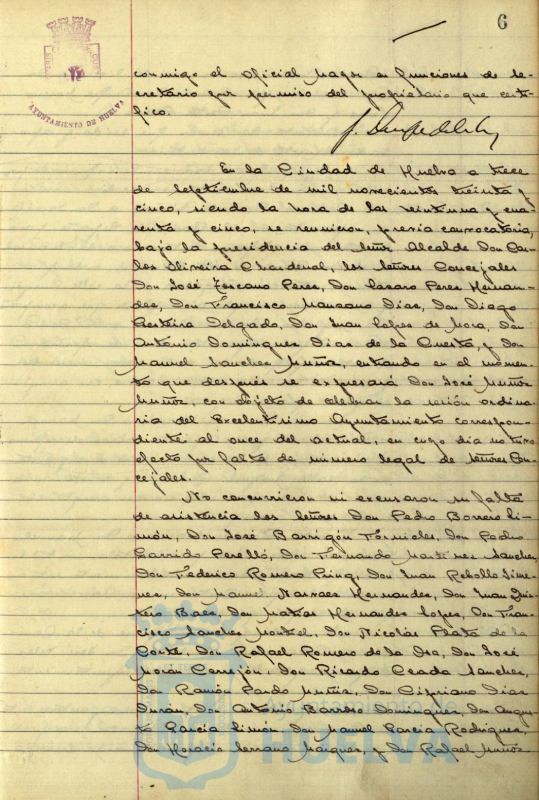 6
AYUNTAMIENTO DE HUELVA
conmigo el Oficial Mayor en funciones de Se-
cretario por permiso del propietario que certi-
fico.
En la Ciudad de Huelva a trece
de Septiembre de mil novecientos treinta y
cinco, siendo la hora de las veintiuna y cua-
renta y cinco, se reunieron, previa convocatoria,
bajo la presidencia del Señor Alcalde Don Car-
los Oliveira Chardenal, los Señores Concejales
Don José Toscano Perez, Don Lazaro Perez Hernan-
dez, Don Francisco Manzano Dias, Don Diego
Delgado, Don Juan Lopez de Mora, Don
Antonio Dominguez Dias de la Cuesta, y Don
Manuel Sanchez Muñoz, entrando en el momen-
to que después se expresará Don José Muñoz
Muñoz, con objeto de celebrar la sesión ordina-
ria del Excelentísimo Ayuntamiento correspon-
diente al once del actual, en cuyo dia no tuvo
efecto por falta de número legal de Señores Con-
cejales.
No concurrieron ni excusaron su falta
de asistencia los Señores Don Pedro Borrero Li-
món, Don José Barrigón Don Pedro
Garrido Perelló, Don Fernando Martinez Sanchez,
Don Federico Romero Don Juan Rebollo Jime-
nez, Don Manuel Narvaez Hernandez, Don Juan Quin-
tero Baez, Don Matias Hernandez Lopez, Don Fran-
cisco Sanchez Don Nicolás Plata de la
Corte, Don Rafael Romero de la Don José
Morón Carrejón, Don Ricardo Ceada Sanchez,
Don Ramón Pardo Muñiz, Don Cipriano Dias
Durán, Don Antonio Barroso Dominguez, Don Augus-
to Garcia Simón, Don Manuel Garcia Rodriguez,
Don Horacio Serrano Marquez, y Don Rafael Muñoz
HUELVA